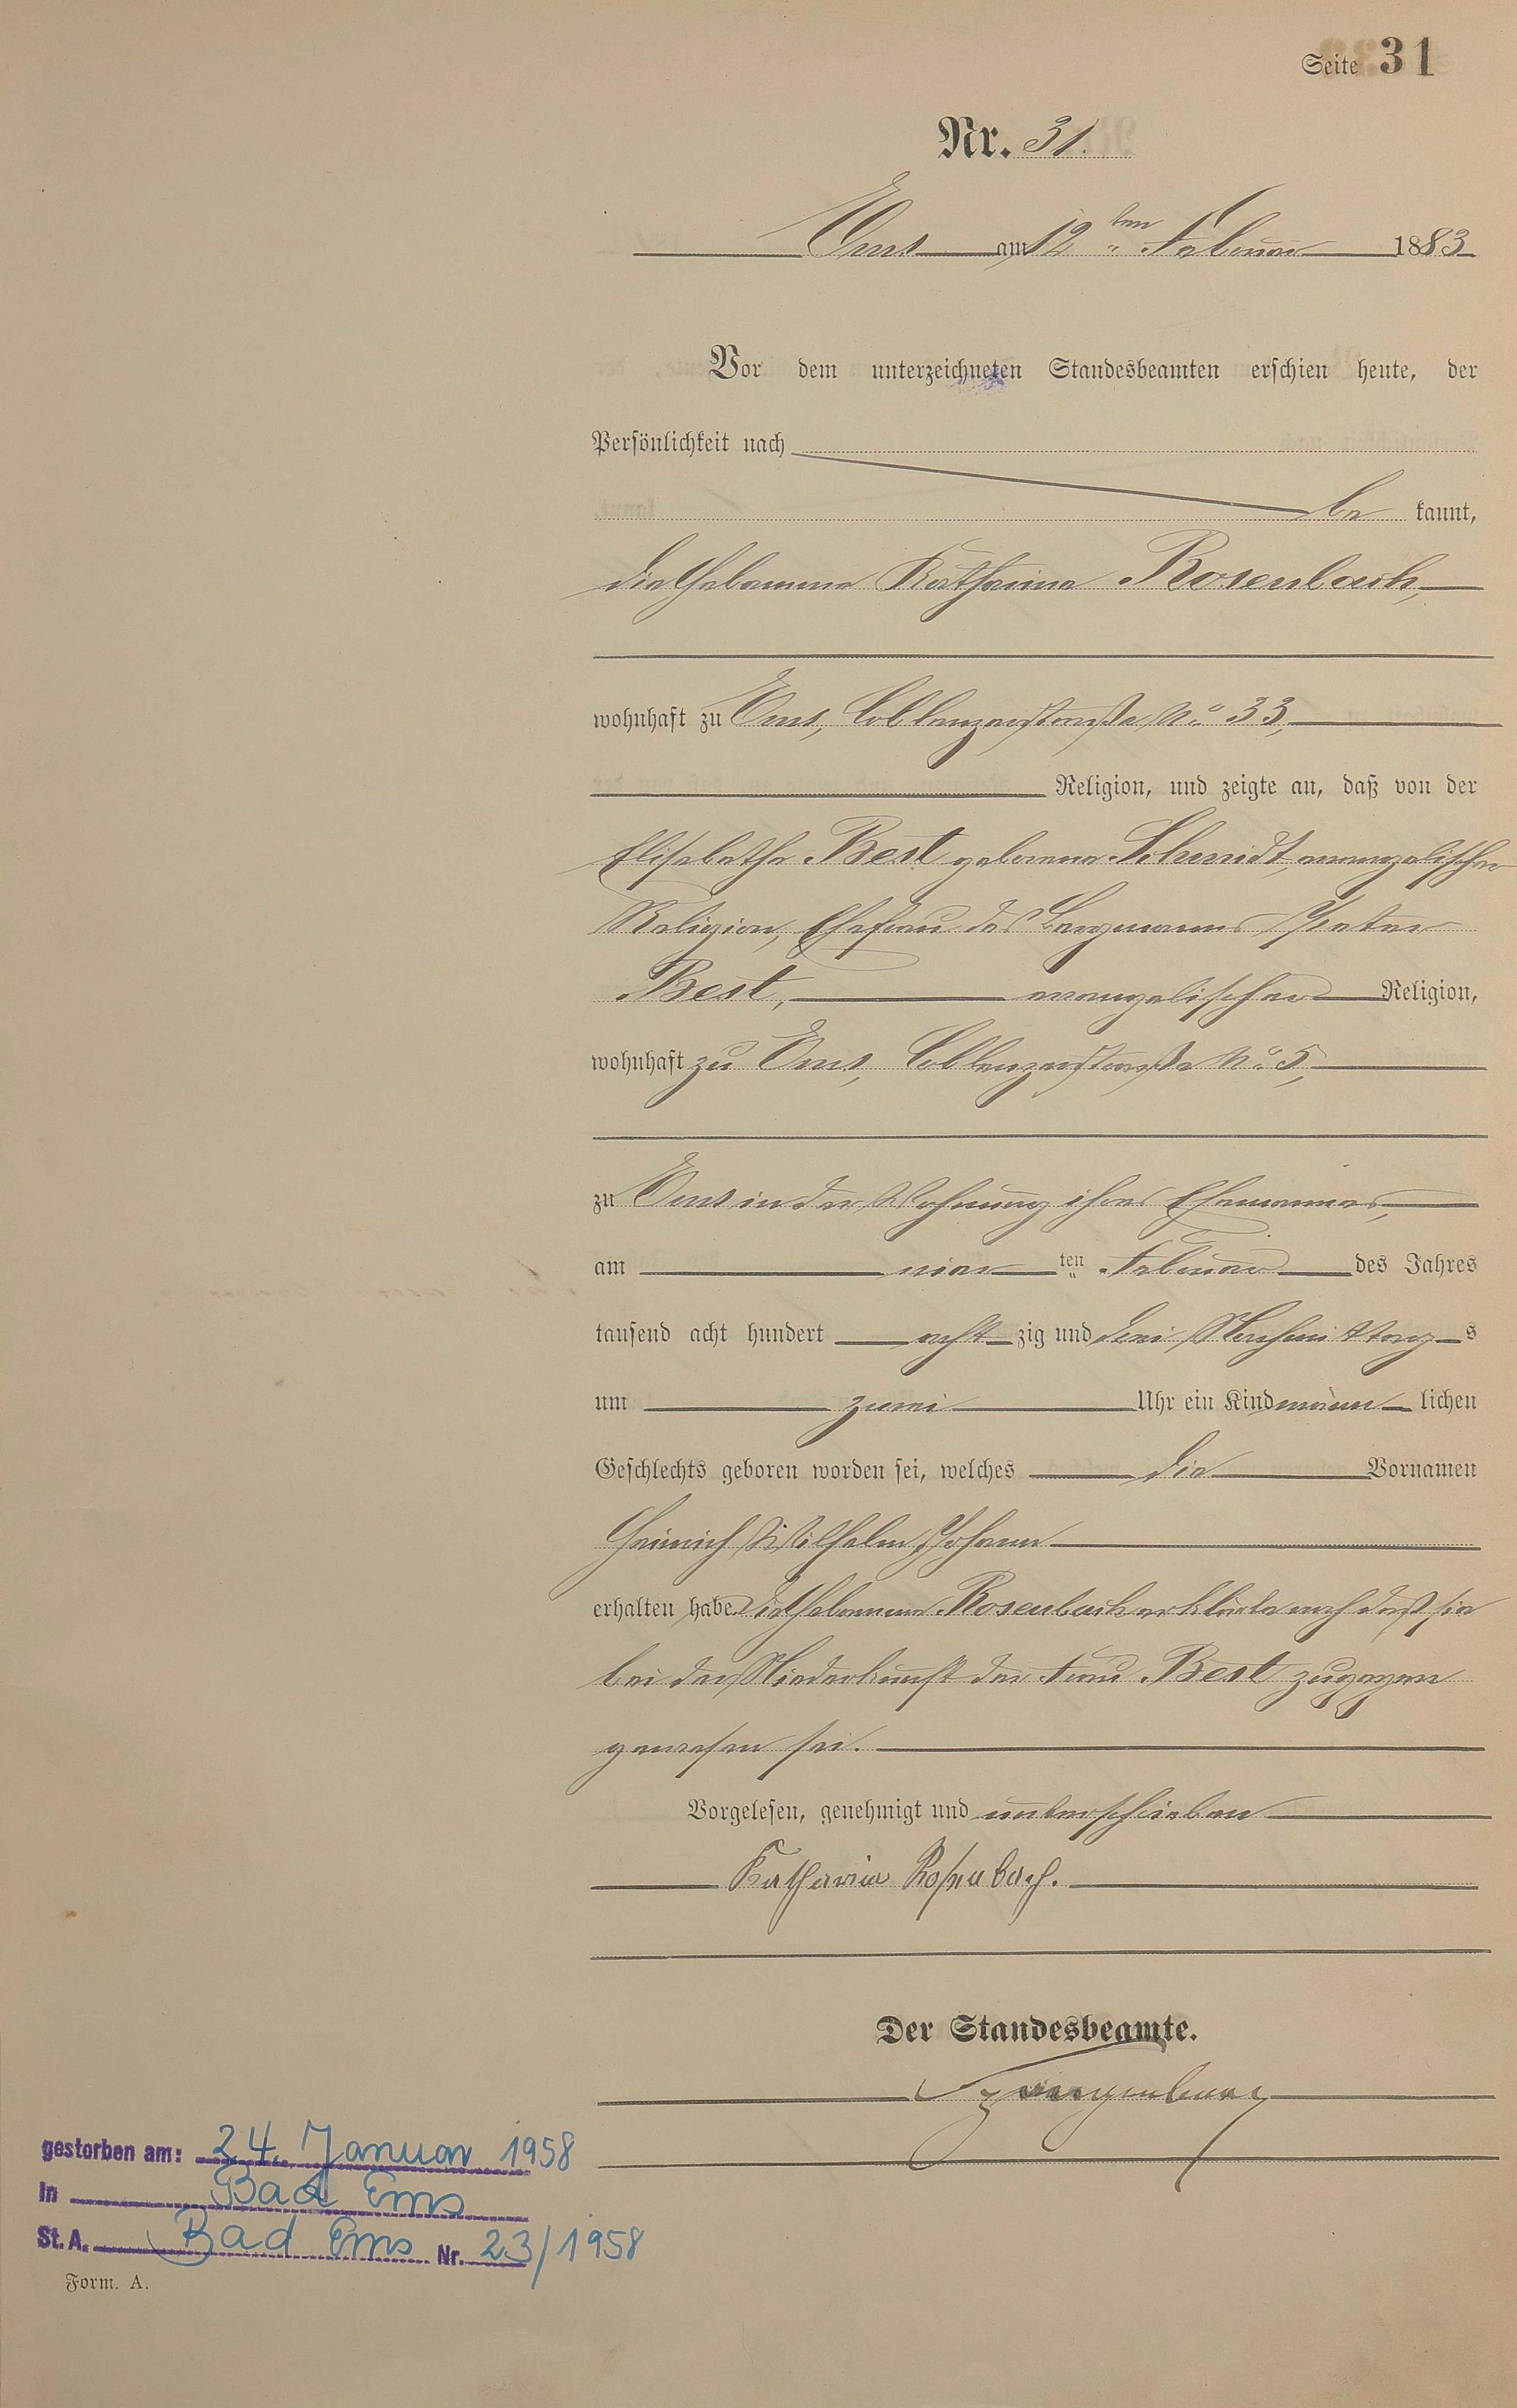 Seite 31
Nr. 31.
Ems am 12ten Februar 1883
Vor dem unterzeichneten Standesbeamten erschien heute, der
Persönlichkeit nach
be kannt,
die Hebamme Katharina Rosenbach,
wohnhaft zu Ems, Coblenzerstraße No. 33,
Religion, und zeigte an, daß von der
Elisabetha Best geborene Schmidt, evangelischer
Religion, Ehefrau des Bergmanns Peter
Best, evangelischer Religion,
wohnhaft zu Ems, Coblenzerstraße No. 5,
zu Ems in der Wohnung ihres Ehemannes,
am vier ten Februar des Jahres
tausend acht hundert acht zig und drei Nachmittag s
um zwei Uhr ein Kind männ lichen
Geschlechts geboren worden sei, welches die Vornamen
Heinrich Wilhelm Johann
erhalten habe. Die Hebamme Rosenbach erklärte noch daß sie
bei der Niederkunft der Frau Best zugegen
gewesen sei.
Vorgelesen, genehmigt und unterschrieben
Katharina Rosenbach.
Der Standesbeamte.
gestorben am: 24. Januar 1958
in Bad Ems
St. A. Bad Ems Nr. 23/1958
Form. A.